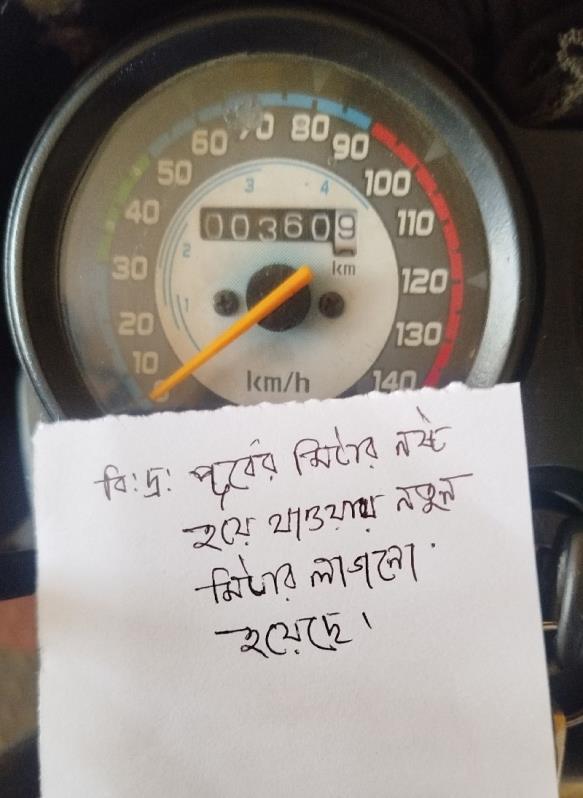 60 70 80
50 90
3 4
40 100
003609 110
2 km
30 120
1
20 130
10 km/h 140
0
বি:দ্র: পূর্বের মিটার নষ্ট
হয়ে যাওয়ায় নতুন
মিটার লাগানো
হয়েছে।